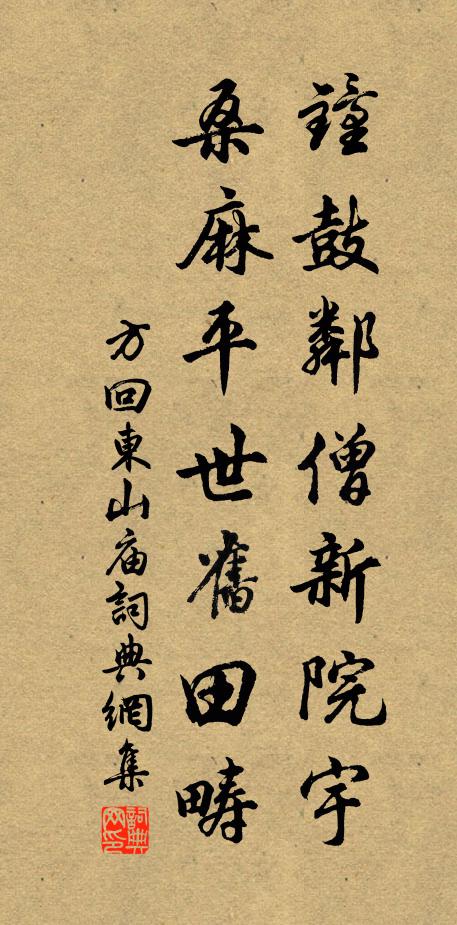 鐘鼓鄰僧新院宇
桑麻平世舊田疇
方回東山庙詞典網集
詞典網印